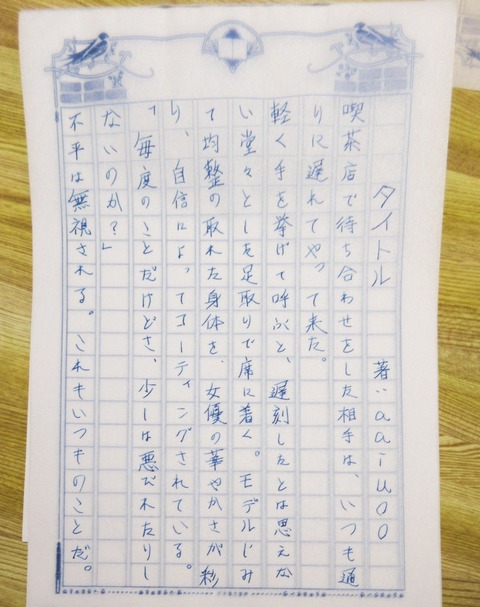 タイトル　著：aaiuoo
喫茶店で待ち合わせをした相手は、いつも通
りに遅れてやって来た。
軽く手を挙げて呼ぶと、遅刻したとは思えな
い堂々とした足取りで席に着く。モデルじみ
て均整の取れた身体を、女優の華やかさが彩
り、自信によってコーティングされている。
「毎度のことだけどさ、少しは悪びれたりし
ないのか？」
不平は無視される。これもいつものことだ。